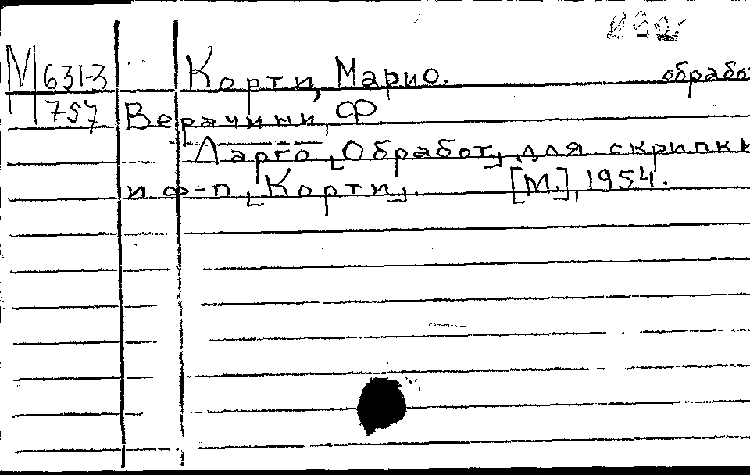 М 631-3 Корти, Марио. обрабо
М 757 Верачини, Ф
Ларго [Обработ] для скрипки
и ф-п [Корти]. [М.], 1954.